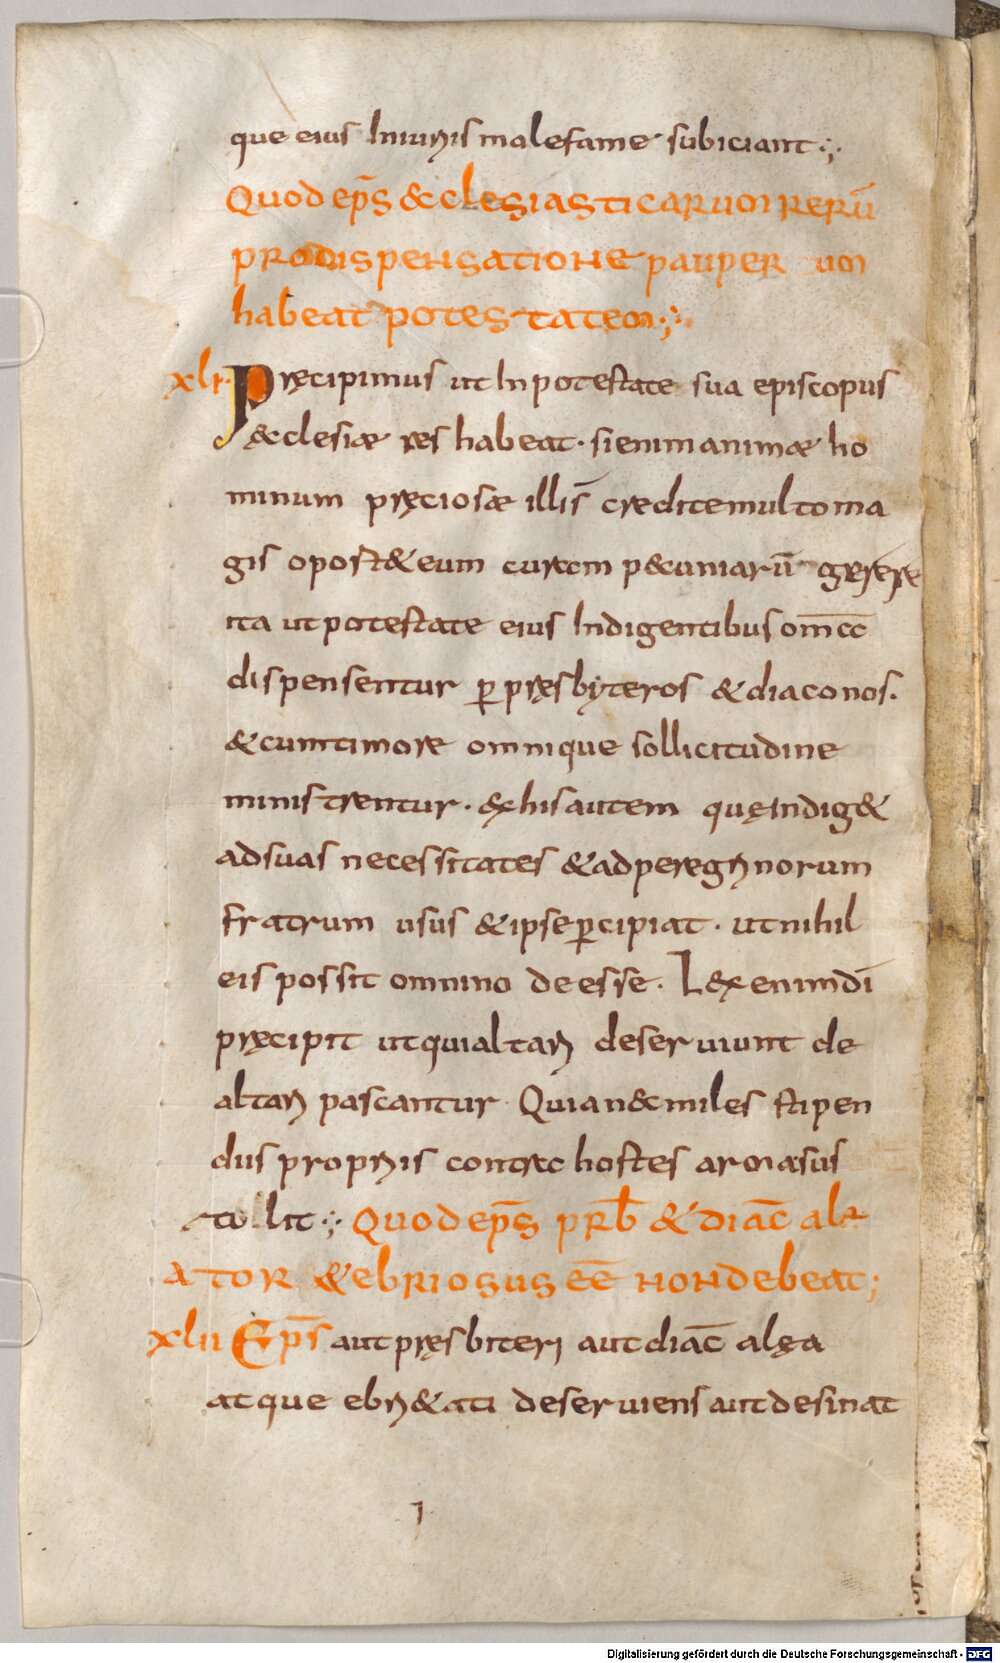 que eius Iniuriis malefame subiciant ·,·
Quod ep̄s &clesiasticarum rerū
pro dispensatione pauperum
habeat potestatem ;·
xli· Pręcipimus ut In potestate sua episcopus
&clesiæ res habeat · si enim animæ ho
minum pręciosæ illīs credite multo ma
gis oport& eum curam p&cuniarū gerere
ita ut potestate eius Indigentibus om̄a
dispensentur ꝑ pręsbyteros & diaconos.
& cum timore omnique sollicitudine
ministrentur · &x his autem quę Indig&
ad suas necessitates & ad peregrinorum
fratrum usus & ipse ꝑcipiat · ut nihil
eis possit omnino deesse · L&x enim dī
pręcipit ut qui altari deserviunt de
altari pascantur Quia n&c miles stipen
diis propriis contra hostes arma sus
tollit ·,· Quod ep̄s pr̄b & diac̄ ale
ator & ebriosus eē non debeat ;
xlii Ep̄s aut pręsbiteri aut diac̄ alęa
atque ebri&ati deserviens aut desinat
Digitalisierung gefördert durch die Deutsche Forschungsgemeinschaft - DFG